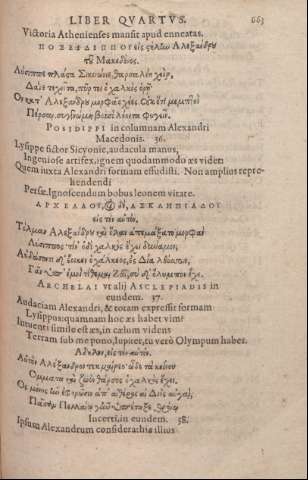 LIBER QVARTVS. 663
Victoria Athenienses mansit apud enneatas.
ΠΟΣΕΙΔΙΠΠΟΥ εἰς στήλην Ἀλεξάνδρου
τοῦ Μακεδόνος.
Λύσιππε πλάστα Σικυώνιε, θαρσαλέη χείρ,
Δάϊε τεχνῖτα, πῦρ τοι ὁ χαλκὸς ὁρῇ
Ὃν κατ' Ἀλεξάνδρου μορφᾶς χέες. οὐκ ἔτι μεμπτοὶ
Πέρσαι, συγγνώμη βουσὶ λέοντα φυγεῖν.
POSIDIPPI in columnam Alexandri
Macedonis. 36.
Lysippe fictor Sicyonie, audacula manus,
Ingeniose artifex, ignem quodammodo æs videt
Quem iuxta Alexandri formam effudisti. Non amplius repre-
hendendi
Persæ. Ignoscendum bobus leonem vitare.
ΑΡΧΕΛΑΟΥ, οἱ δὲ, ΑΣΚΛΗΠΙΑΔΟΥ
εἰς τὸν αὐτόν.
Τόλμαν Ἀλεξάνδρου καὶ ὅλαν ἀπεμάξατο μορφὰν
Λύσιππος· τίν' ὁδὶ χαλκὸς ἔχει δύναμιν;
Αὐδάσοντι δ' ἔοικεν ὁ χάλκεος, ἐς Δία λεύσσων,
Γᾶν ὑπ' ἐμοὶ τίθεμαι, Ζεῦ, σὺ δ' ὄλυμπον ἔχε.
ARCHELAI vt alij ASCLEPIADIS in
eundem. 37.
Audaciam Alexandri, & totam expressit formam
Lysippos: quamnam hoc æs habet vim?
Intuenti simile est æs, in cælum videns
Terram sub me pono, Iupiter, tu verò Olympum habes.
Ἄδηλον, εἰς τὸν αὐτόν.
Αὐτὸν Ἀλέξανδρον τεκμαίρεο· ὧδε τὰ κείνου
Ὄμματα καὶ ζωὸν θάρσος ὁ χαλκὸς ἔχει.
Ὃς μόνος ἣν ἐφορῶσιν ἀπ' αἰθέρος αἱ Διὸς αὐγαὶ,
Πᾶσαν Πελλαίῳ γῆν ὑπέταξε θρόνῳ
Incerti, in eundem. 38.
Ipsum Alexandrum considera: hîc illius